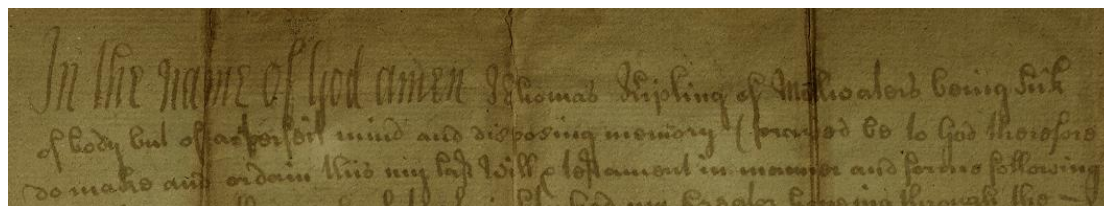 In the name of God amen Thomas Kipling of Mellwaters being sick
of body but of a perfeit mind and disposing memory (praised be to God therefore
do make and ordain this my last Will & testament in manner and forme following